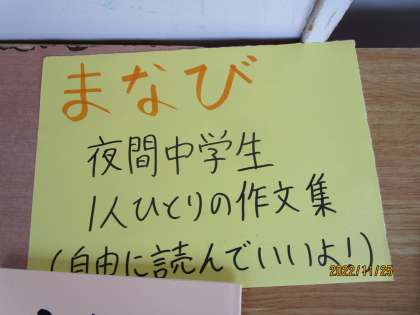 まなび
夜間中学生
1人ひとりの作文集
(自由に読んでいいよ!)
2022/11/25